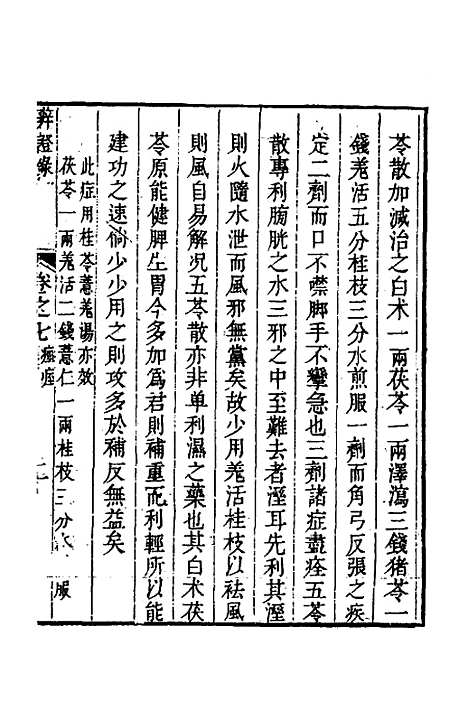 苓散加減治之白术一兩茯苓一兩澤瀉三錢猪苓一
錢羗活五分桂枝三分水煎服一劑而角弓反張之疾
定二劑而口不噤脚手不攣急也三劑諸症盡痊五苓
散專利膀胱之水三邪之中至難去者溼耳先利其溼
則火隨水泄而風邪無黨矣故少用羗活桂枝以祛風
則風自易解况五苓散亦非单利濕之藥也其白术茯
苓原能健脾生胃今多加爲君則補重而利輕所以能
建功之速倘少少用之則攻多於補反無益矣
此症用桂苓薏羗湯亦效
茯苓一兩羗活二錢薏仁一兩桂枝三分 服
辨證錄 卷之七 痙痓